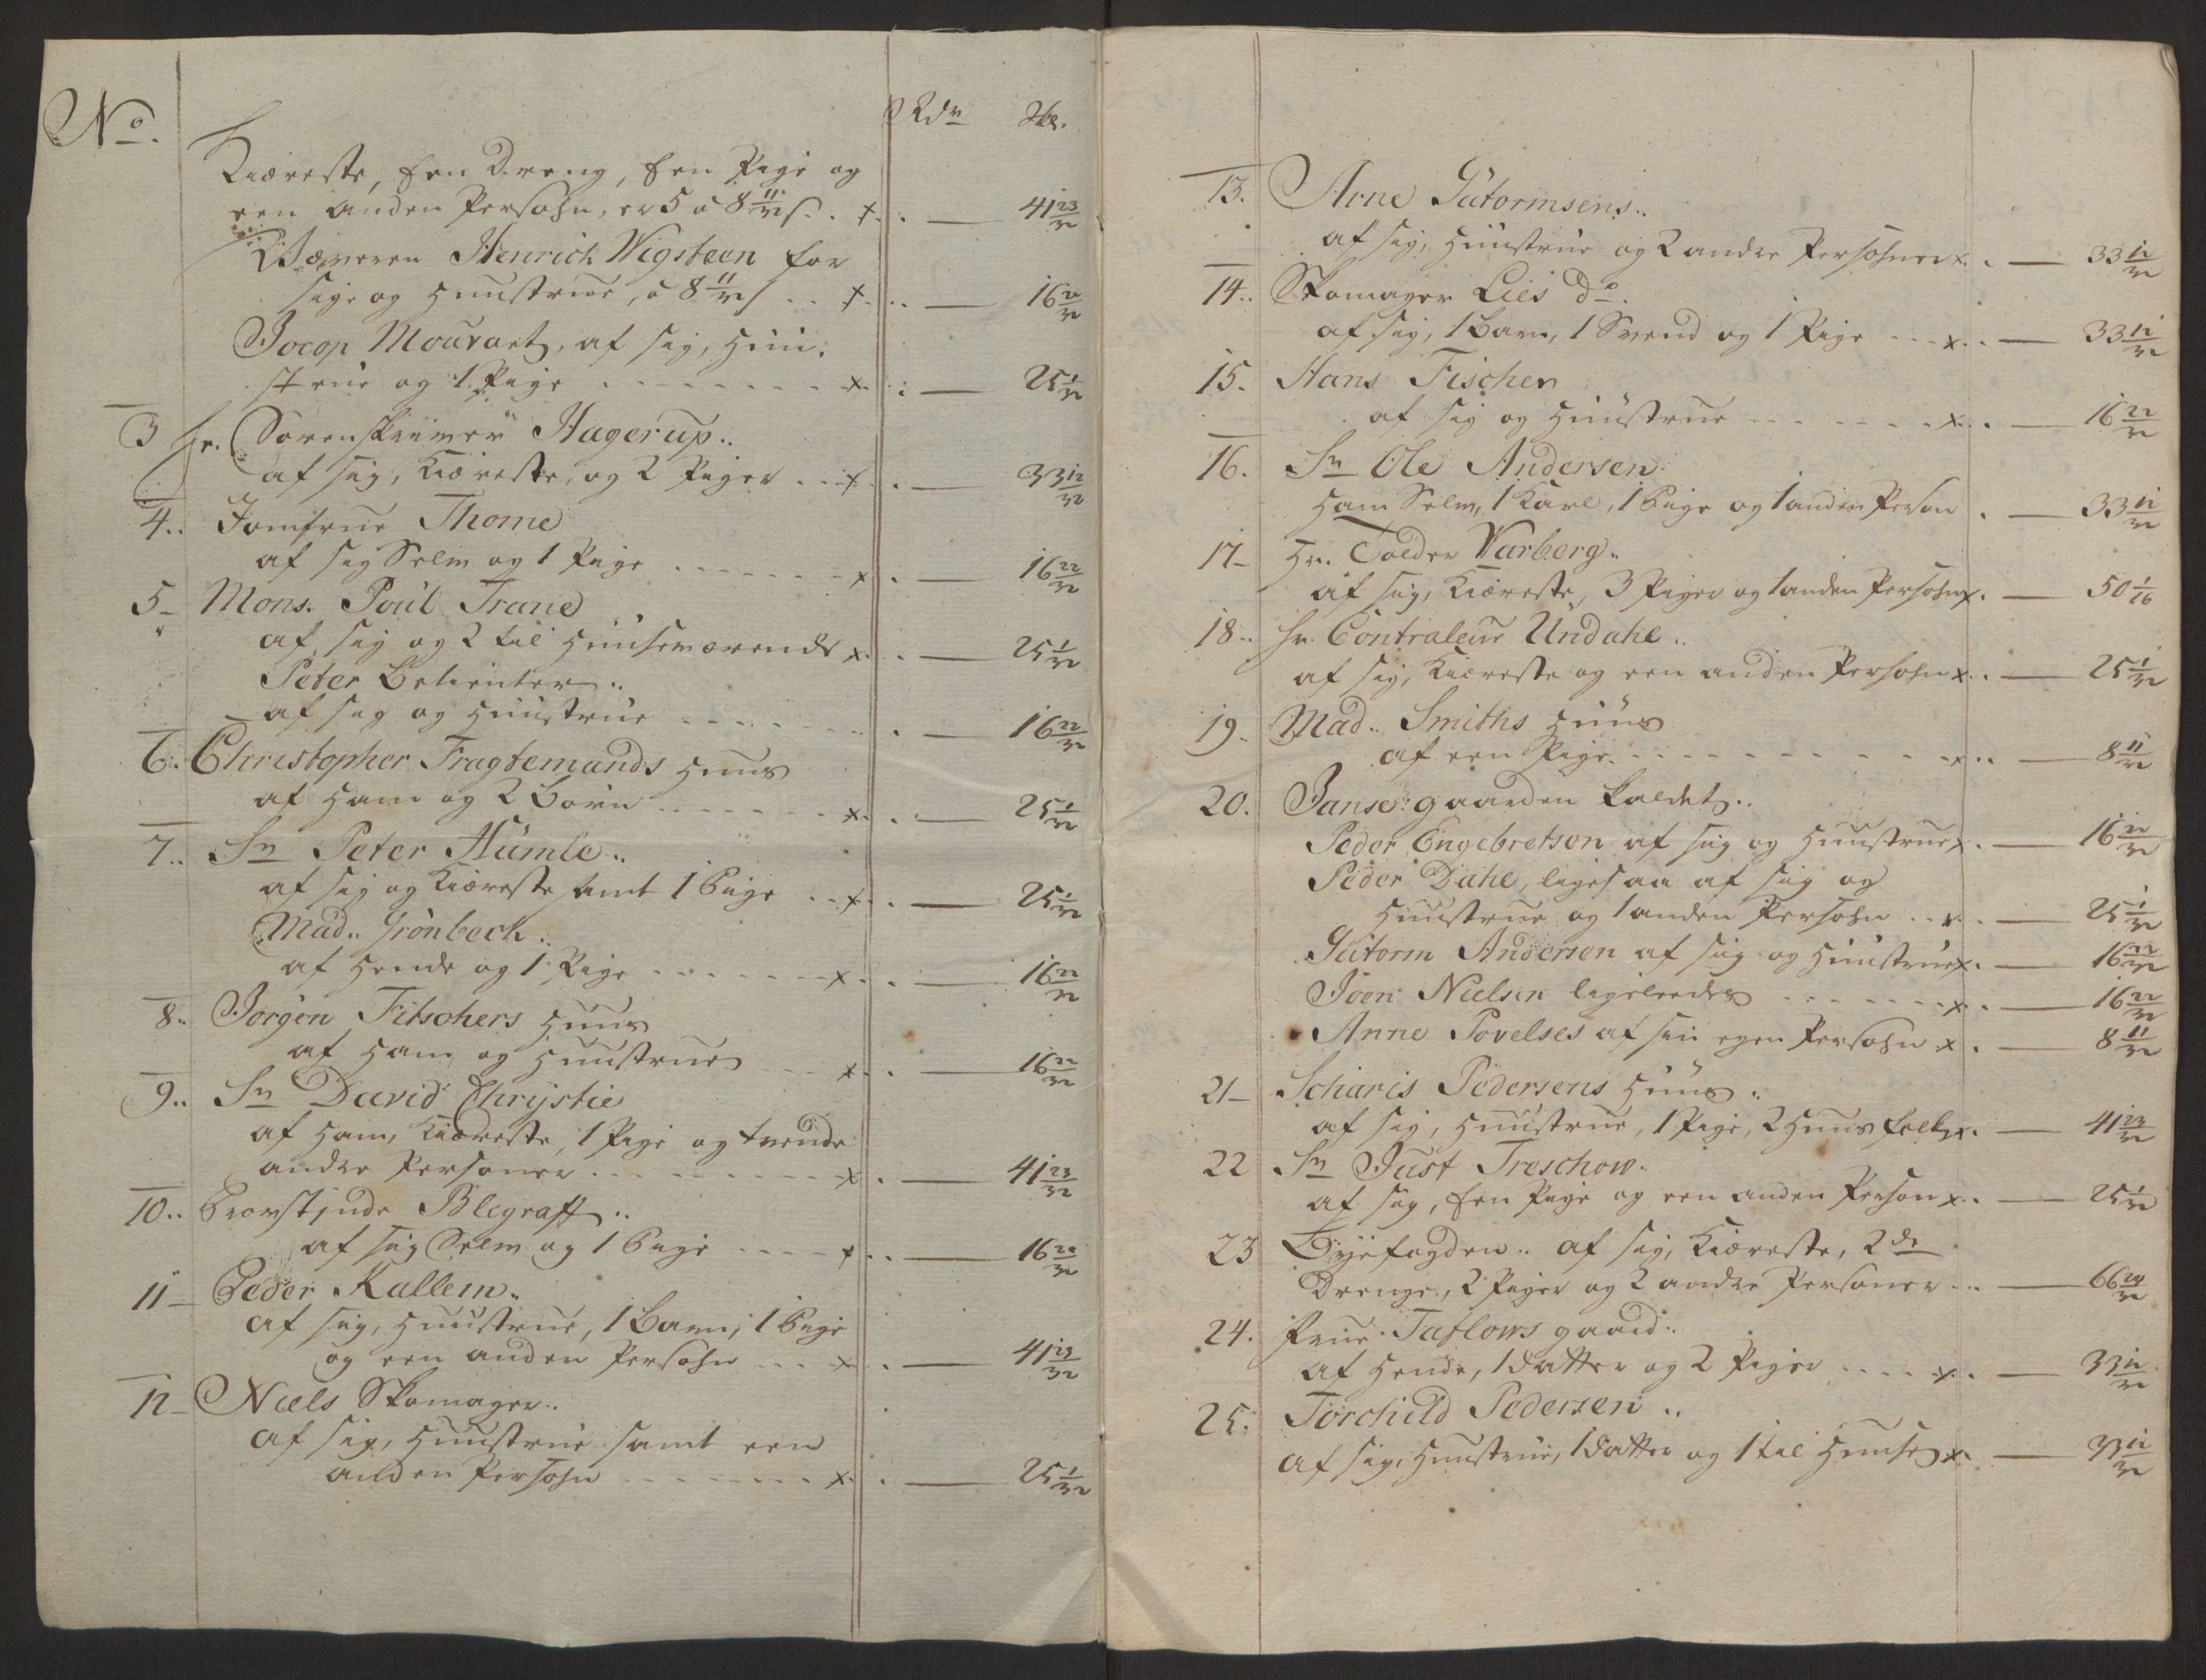 No. Rdr Skl.
Kiæreste, Een Dreng, Een Pige og
een anden Persohn, er 5 á 8 11/32 s. x. — 41 23/32
Henrich Wigsteen for
sige og Huustrue, á 8 11/32 s x. — 16 22/32
Jocop Mourart, af sig, Huu-
strue og 1 Pige x. — 25 1/32
3 Hr. Sorenskriver Hagerup..
af sig, Kiæreste, og 2 Piger x. — 33 12/32
4.. Jomfrue Thome
af sig Selv og 1 Pige x. — 16 22/32
5 Mons. Poul Trane
af sig og 2 til Huusværende x. — 25 1/32
Peter
af sig og Huustrue — 16 22/32
6. Christopher Fragtemands Huus
af Ham og 2 Børn x. — 25 1/32
7.. Sr Peter Humle..
af sig og Kiæreste samt 1 Pige x. — 25 1/32
Mad.. Grönbech..
af Hende og 1 Pige x. — 16 22/32
8.. Jørgen Fitschers Huus
af Ham og Huustrue x. — 16 22/32
9.. Sr David Chrystie
af Ham, Kiæreste, 1 Pige og tvende
andre Personer x. — 41 23/32
10.. Blegraff..
af sig Selv og 1 Pige x. — 16 22/32
11 Peder Kallem..
af sig, Huustrue, 1 Barn, 1 Pige
og een anden Persohn x. — 41 23/32
12 Niels Skomager..
af sig, Huustrue samt een
anden Persohn x. — 25 1/32
13. Arne Gutormsens..
af sig, Huustrue og 2 andre Persohner x. — 33 12/32
14.. Skomager Lies do.
af sig, 1 Barn, 1 Svend og 1 Pige x. — 33 12/32
15. Hans Fischer
af sig og Huustrue x. — 16 22/32
16. Sr Ole Andersen
Ham Selv, 1 Karl, 1 Pige og 1 anden Person . — 33 12/32
17 Hr. Tolder Warberg..
af sig, Kiæreste, 3 Piger og 1 anden Persohn x. — 50 1/16
18.. Hr. Contraleur Undahl..
af sig, Kiæreste og een anden Persohn x. — 25 1/32
19.. Mad.. Smiths Huus
af een Pige x. — 8 11/32
20. Janse-gaarden kaldet..
Peder Engebretsen af sig og Huustrue x. — 16 22/32
Peder Dahl, ligesaa af sig og
Huustrue og 1 anden Persohn x. — 25 1/32
Gutorm Andersen af sig og Huustrue x. — 16 22/32
Joen Nielsen ligeleedes x. — 16 22/32
Anne Povelses af sin egen Persohn x. — 8 11/32
21 Scharis Pedersens Huus..
af sig, Huustrue, 1 Pige, 2 Huusfolk x. — 41 23/32
22 Sr Just Treschow.
af sig, Een Pige og een anden Person x. — 25 1/32
23 Byefogden.. af sig, Kiæreste, 2de
Drenge, 2 Piger og 2 andre Personer — 66 24/32
24. Frue Taflows gaard..
af Hende, 1 Datter og 2 Piger x. — 33 12/32
25. Torchild Pedersen..
af sig, Huustrue, 1 Datter og 1 til Huuse x. — 33 12/32